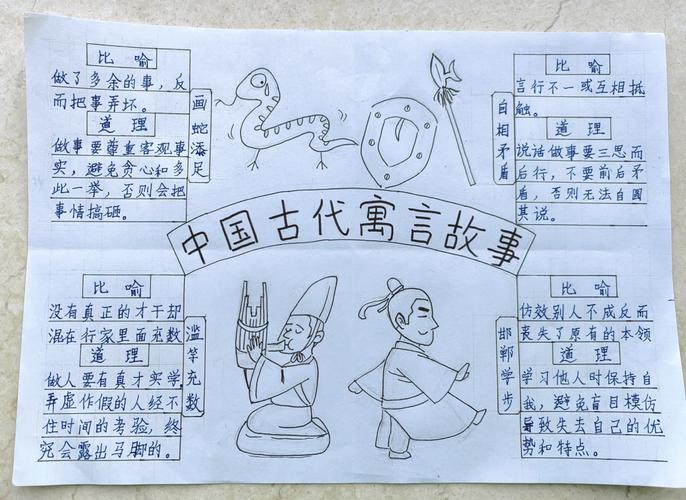 比喻
做了多余的事，反
而把事弄坏。
道理
做事要尊重客观事
实，避免贪心和多
此一举，否则会把
事情搞砸。
画蛇添足
比喻
言行不一或互相抵
触。
道理
说话做事要三思而
后行，不要前后矛
盾，否则无法自圆
其说。
自相矛盾
中国古代寓言故事
比喻
没有真正的才干却
混在行家里面充数
道理
做人要有真才实学
弄虚作假的人经不
住时间的考验，终
究会露出马脚的。
滥竽充数
比喻
仿效别人不成反而
丧失了原有的本领
道理
学习他人时保持自
我，避免盲目模仿
导致失去自己的优
势和特点。
邯郸学步